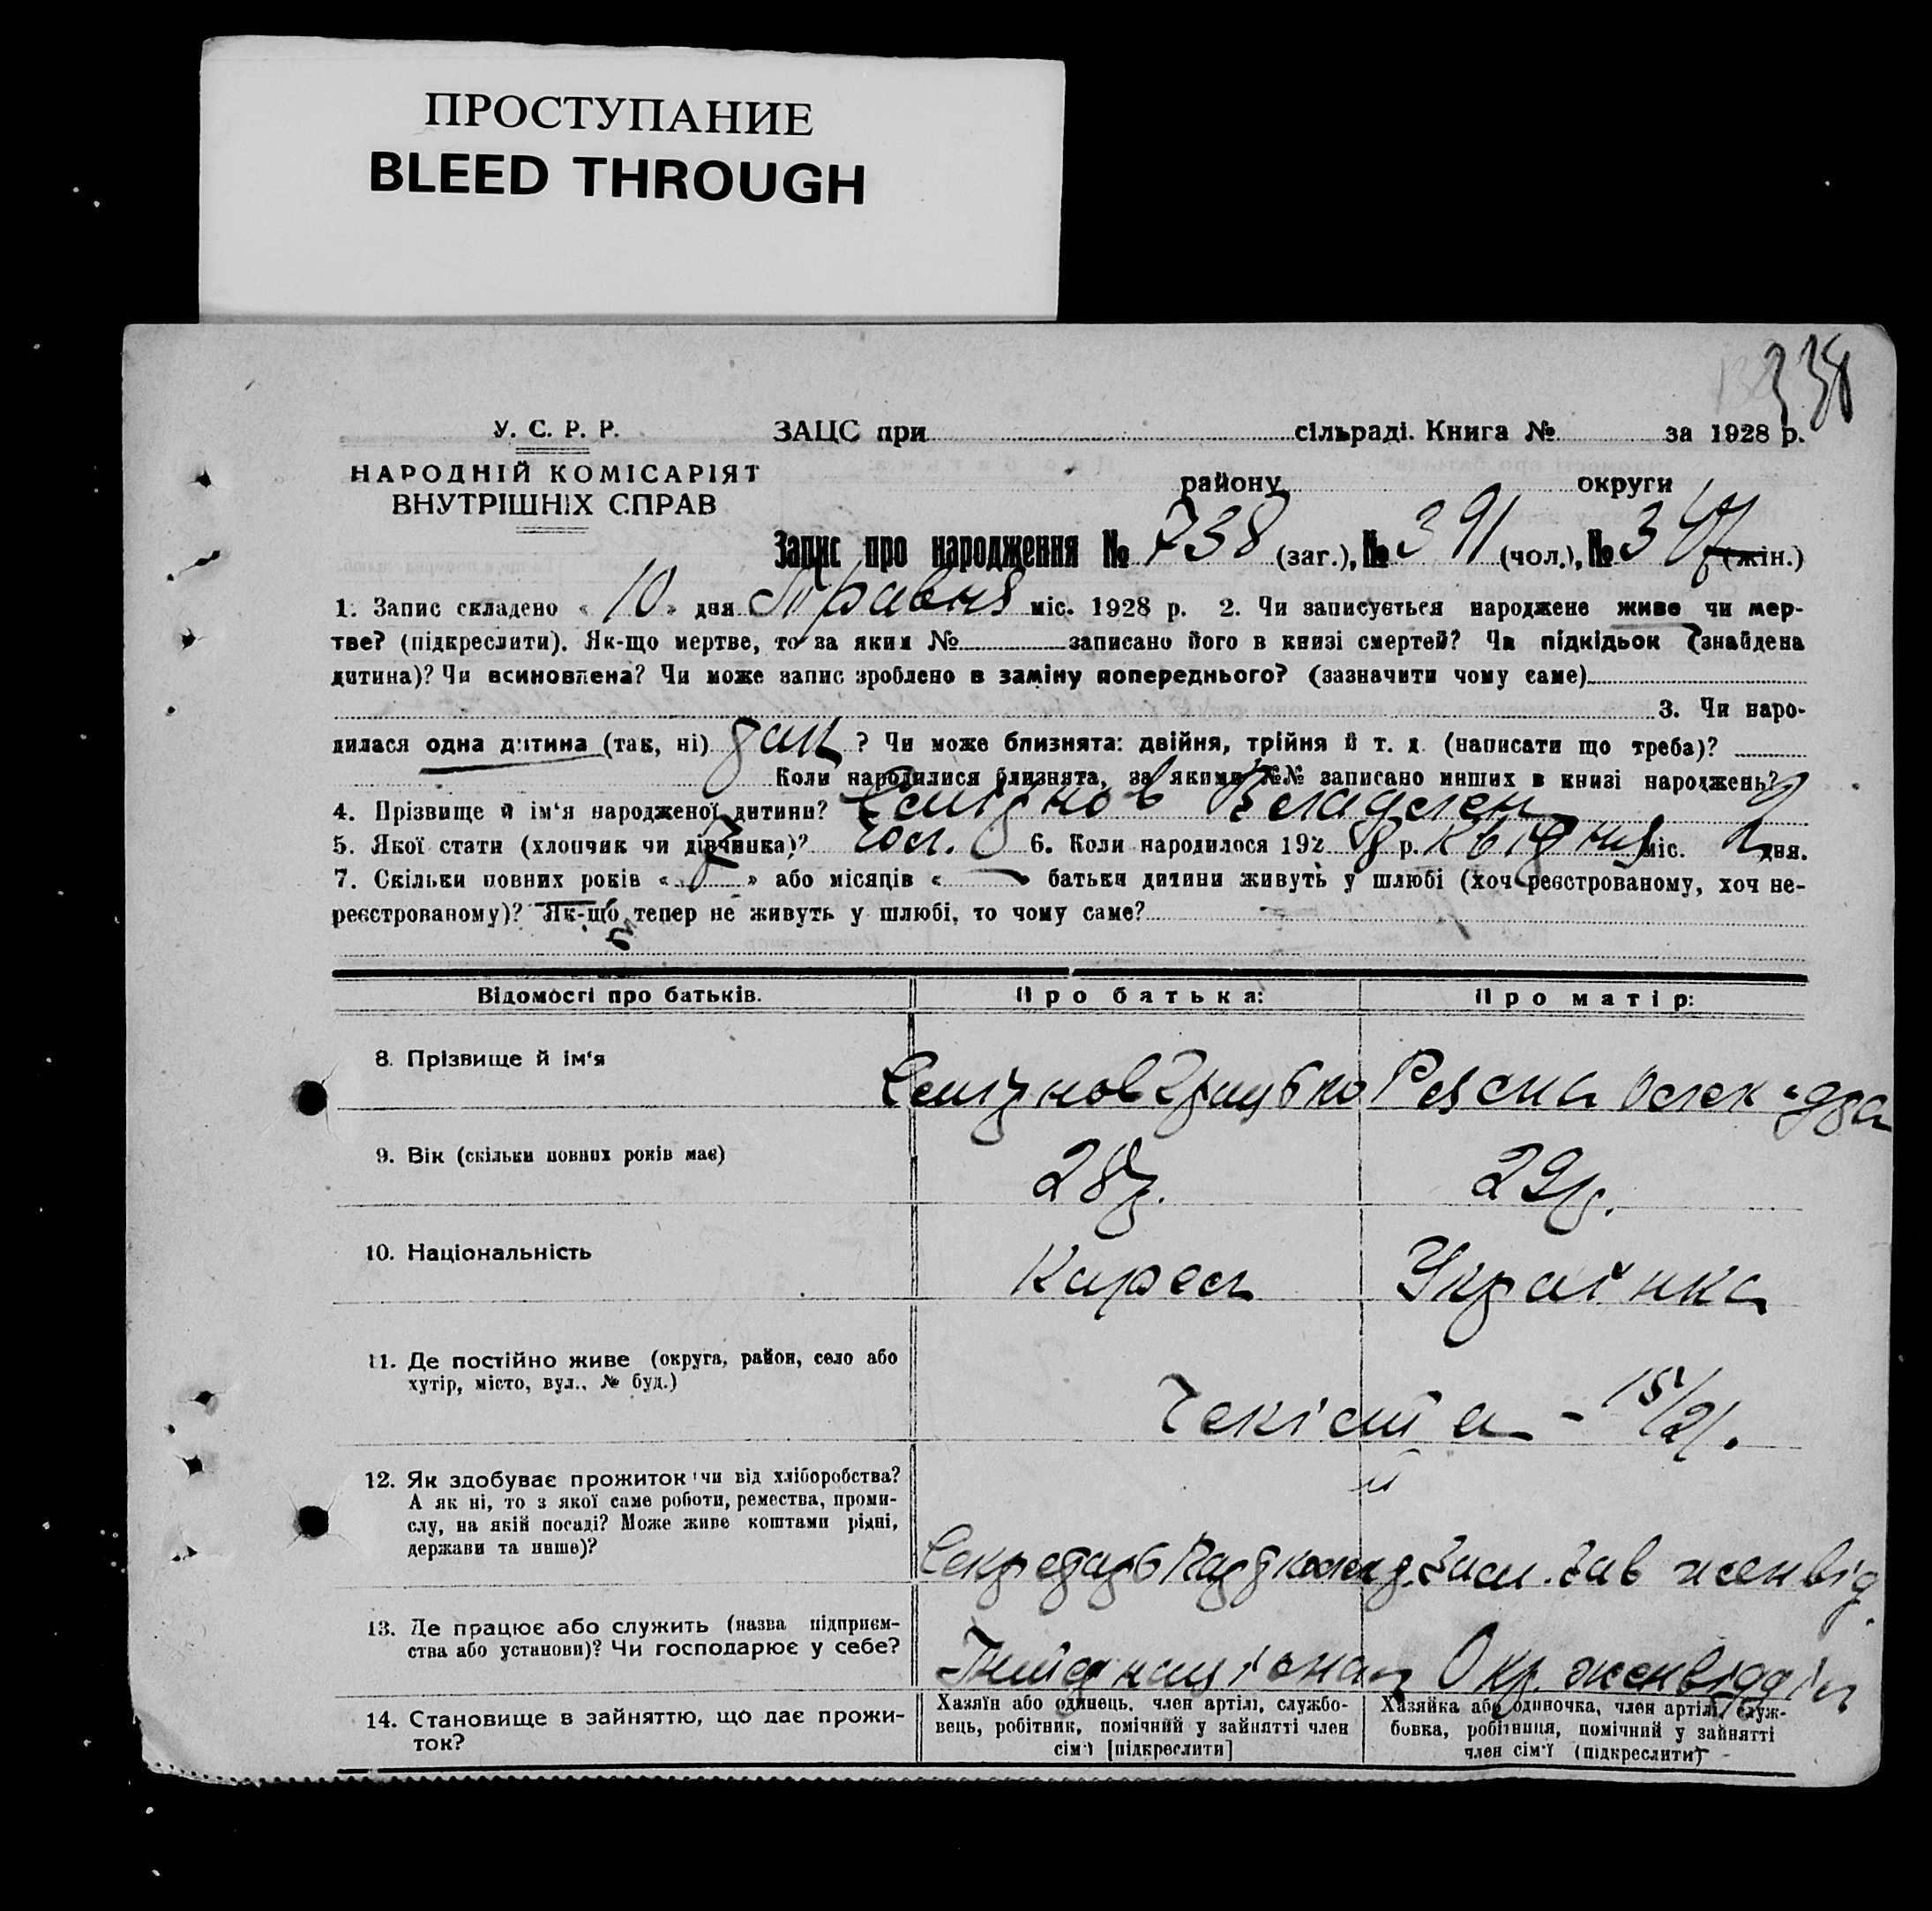 ПРОСТУПАНИЕ
BLEED THROUGH
338
У. С. Р. Р.
НАРОДНІЙ КОМІСАРІЯТ
ВНУТРІШНІХ СПРАВ
ЗАЦС при сільраді. Книга № за 1928 р.
району округи
Запис про народження № 738 (заг.), № 391 (чол.), № 347 (жін.)
1. Запис складено « 10 » дня Травня міс. 1928 р. 2. Чи записується народжене живе чи мер-
тве? (підкреслити). Як-що мертве, то за яким № записано його в книзі смертей? Чи підкідьок (знайдена
дитина)? Чи всиновлена? Чи може запис зроблено в заміну попереднього? (зазначити чому саме)
3. Чи наро-
дилася одна дитина (так, ні) ? Чи може близнята: двійня, трійня й т. д. (написати що треба)?
Коли народилися близнята, за якими №№ записано инших в книзі народжень?
4. Прізвище й ім'я народженої дитини?
5. Якої стати (хлопчик чи дівчинка)? чол. 6. Коли народилося 1928 р. Квітня міс. 2 дня.
7. Скільки повних років « 7 » або місяців « — » батьки дитини живуть у шлюбі (хоч реєстрованому, хоч не-
реєстрованому)? Як-що тепер не живуть у шлюбі, то чому саме?
Відомості про батьків. Про батька: Про матір:
8. Прізвище й ім'я
9. Вік (скільки повних років має) 28 р. 29 р.
10. Національність Кореєць Українка
11. Де постійно живе (округа, район, село або
хутір, місто, вул., № буд.)
Чекіста - 15/21.
12. Як здобуває прожиток чи від хліборобства?
А як ні, то з якої саме роботи, ремества, проми-
слу, на якій посаді? Може живе коштами рідні,
держави та инше)?
Секретарь Партколект. Зам. Зав женвід.
13. Де працює або служить (назва підприєм-
ства або установи)? Чи господарює у себе?
Інтернаціонал Окр. женвідділ
14. Становище в зайняттю, що дає прожи-
ток?
Хазяїн або одинець, член артілі, службо-
вець, робітник, помічний у зайнятті член
сім'ї [підкреслити]
Хазяйка або одиночка, член артілі, служ-
бовка, робітниця, помічний у зайнятті
член сім'ї (підкреслити)